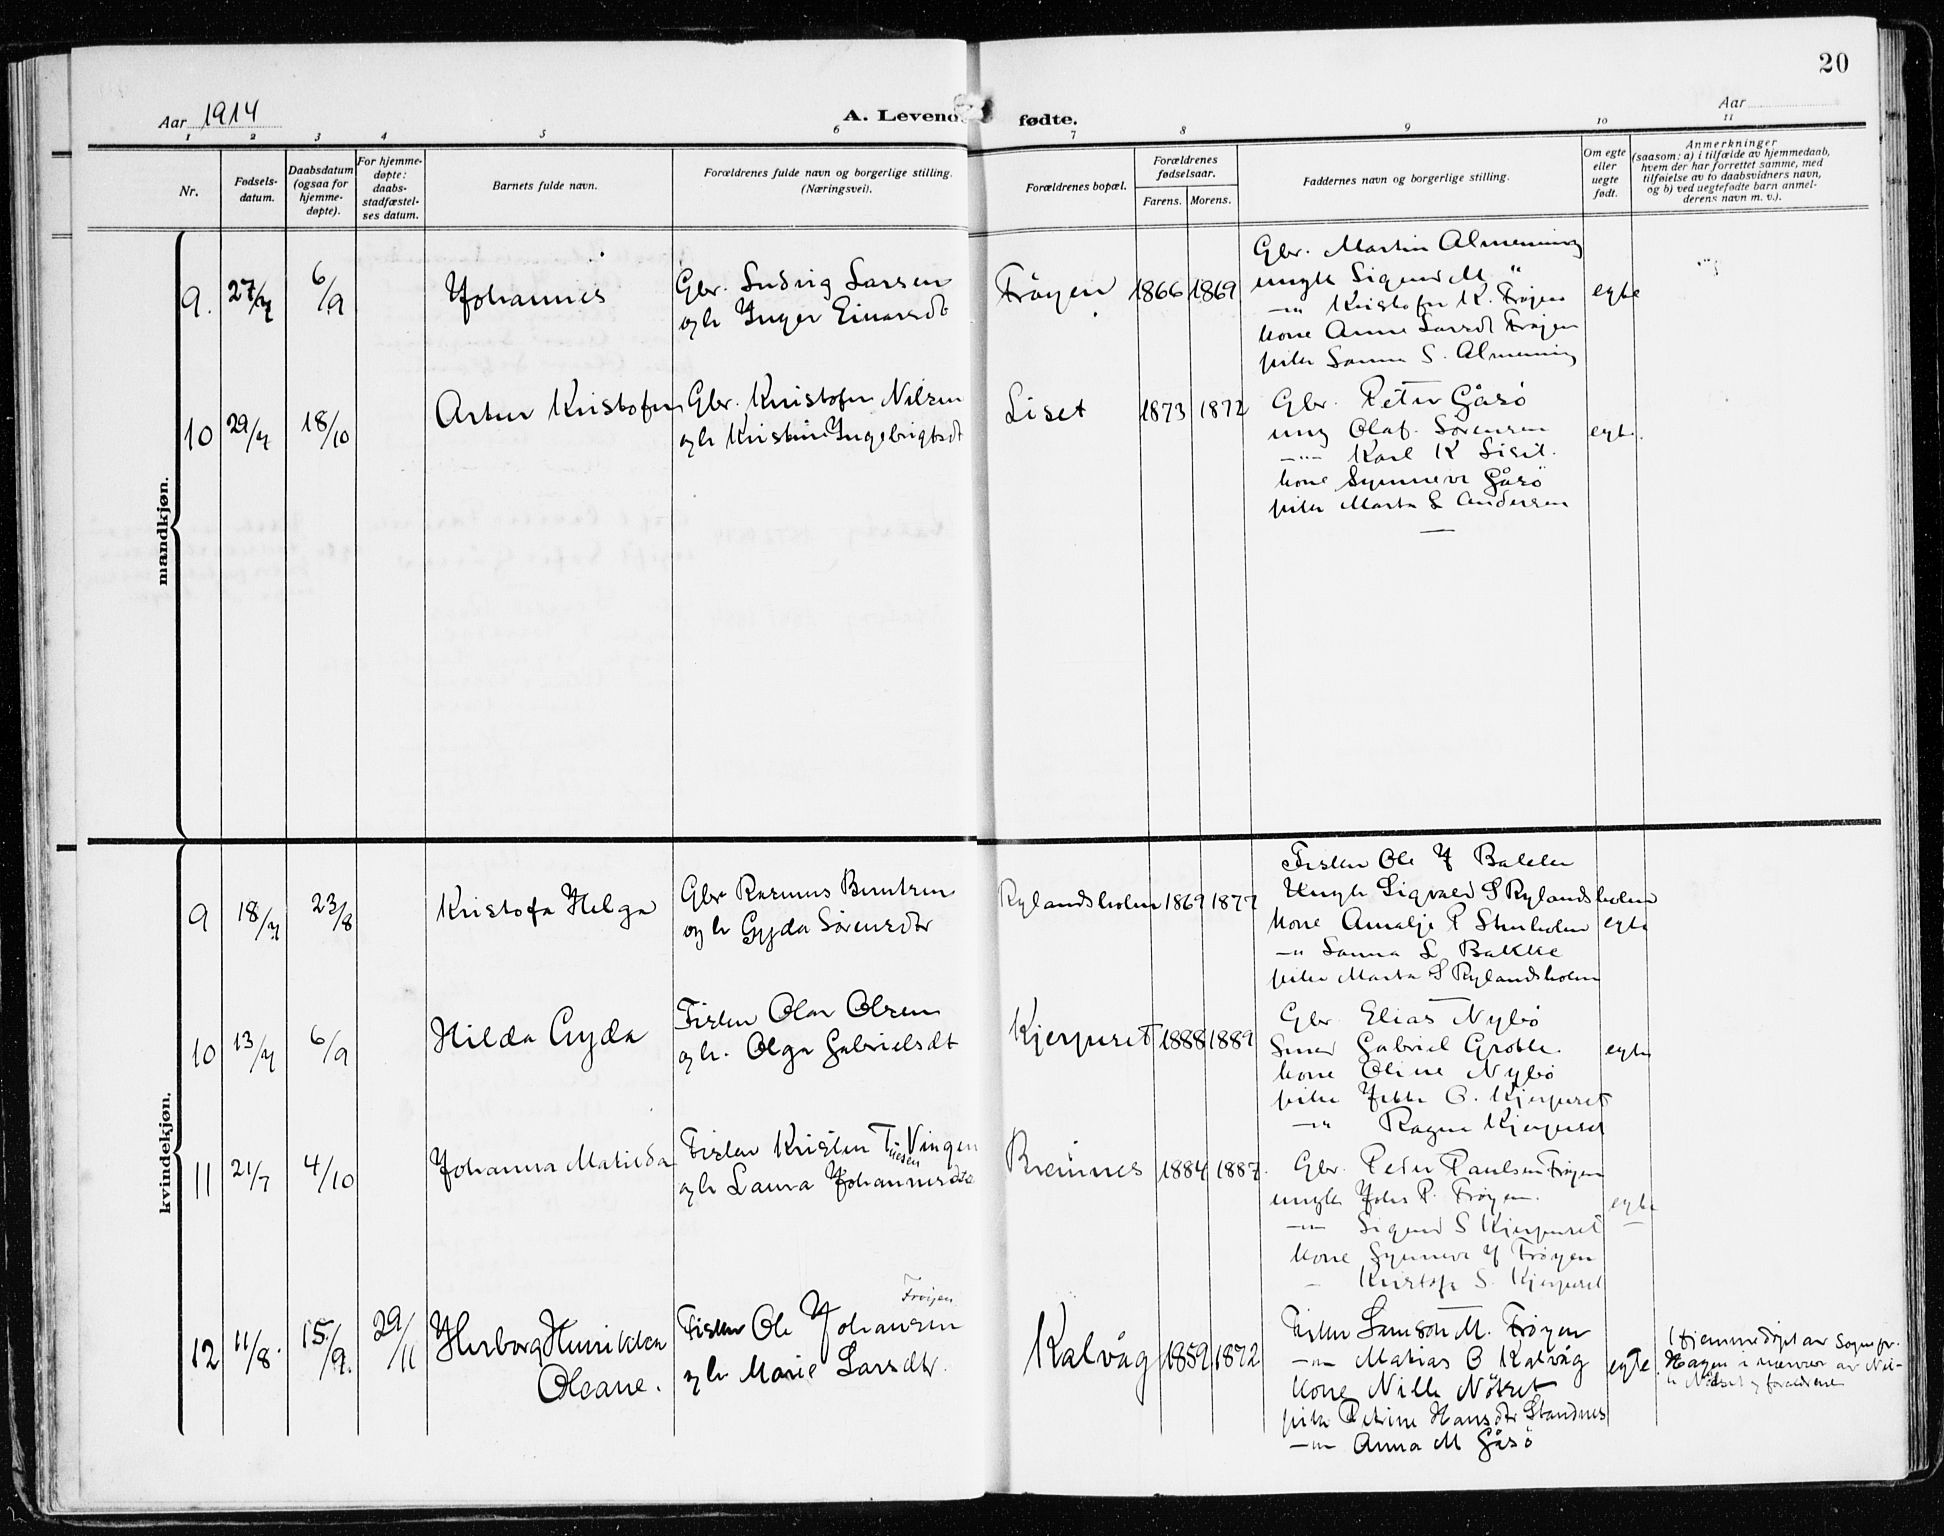 20
Aar 1914
A. Levend
fødte.
Aar
1 2 3 4 5 6 7 8 9 10 11
Nr.
Fødsels-
datum.
Daabsdatum
(ogsaa for
hjemme-
døpte).
For hjemme-
døpte:
daabs-
stadfæstel-
ses datum.
Barnets fulde navn.
Forældrenes fulde navn og borgerlige stilling.
(Næringsvei).
Forældrenes bopæl.
Forældrenes
fødselsaar.
Farens. Morens.
Faddernes navn og borgerlige stilling.
Om egte
eller
uegte
født.
Anmerkninger
(saasom: a) i tilfælde av hjemmedaab,
hvem der har forrettet samme, med
tilføielse av to daabsvidners navn,
og b) ved uegtefødte barn anmel-
derens navn m. v.).
mandkjøn.
9. 27/7 6/9
Johannes
Gbr. Ludvig Larsen
og h Inger Einarsdt
Frøyen
1866 1869
Gbr. Martin Almenning
ungk Sigurd M. "
—"— Kristofer K. Frøyen
kone Anne Larsdt Frøyen
pike Sanna S. Almenning
egte
10 29/7 18/10
Artur Kristofer
Gbr. Kristofer Nilsen
og h Kristine Ingebrigtsdt
Liset
1873 1872
Gbr. Peter Gåsø
ung Olaf Sørensen
—"— Karl K Liset.
kone Synneve Gåsø
pike Marta L Andersen
egte.
kvindekjøn.
9 18/7 23/8
Kristofa Helga
Gbr Rasmus Berntsen
og h Gyda Sørensdtr
Rylandsholm
1869 1877
Fisker Ole J Bakke
Ungk Sigvald S Rylandsholm
kone Amalje P Stenholm
—"— Sanna L Bakke
pike Marta S Rylandsholm
egte
10 13/7 6/9
Hilda Gyda
Fisker Olav Olsen
og h. Olga Gabrielsdt
Kjerpeset
1888 1889
Gbr. Elias Nybø
Smed Gabriel Grotle.
kone Oline Nybø
pike O. Kjerpeset
—"— Ragna Kjerpeset
egte
11 21/7 4/10
Johanna Matilda
Fisker Kristen Tiesen Vingen
og h Laura Johannesdtr
Bremnes
1884 1887.
Gbr. Peter Paulsen Frøyen
ungk Johs P. Frøyen.
—"— Sigurd S Kjerpeset
kone Synneve J Frøyen
— Kristofa S. Kjerpeset
egte
12 11/8. 15/9. 29/11
Herborg Henrikka
Oleane.
Frøyen
Fisker Ole Johansen
og h. Marie Larsdtr.
Kalvåg
1859 1872
Fisker Samson M. Frøyen
—"— Matias O Kalvåg
kone Nille Nötset
pike Petrine Hansdtr Standnes
—"— Anna M Gåsö
egte.
Hjemmedöpt av Sognepr.
Hagen i nærvær av Nil-
le Nötset og forældrene